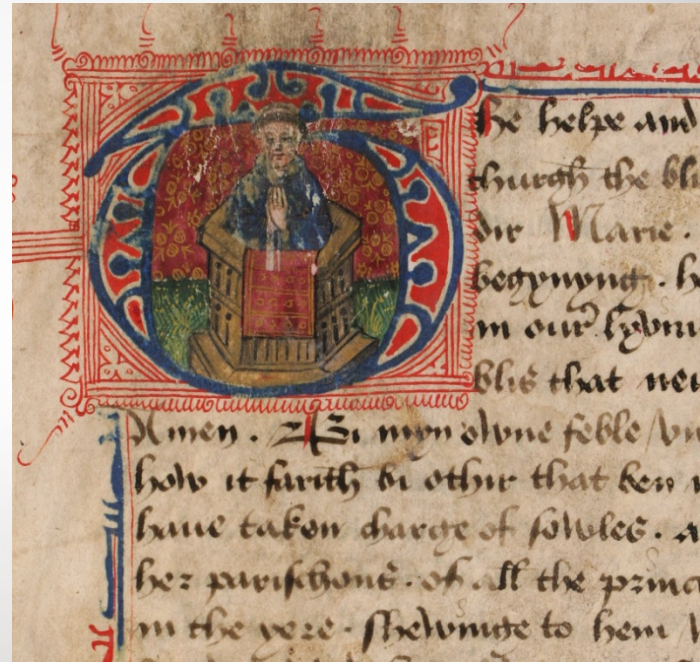 The helpe and
thurgh the bli
dir Marie .
begynyng . he
in our lyvin
blis that nev
Amen . Bi myn owne feble
how it farith bi othir that ben
haue taken charge of sowles . a
her parischons . of all the princ
in the yere . shewinge to hem